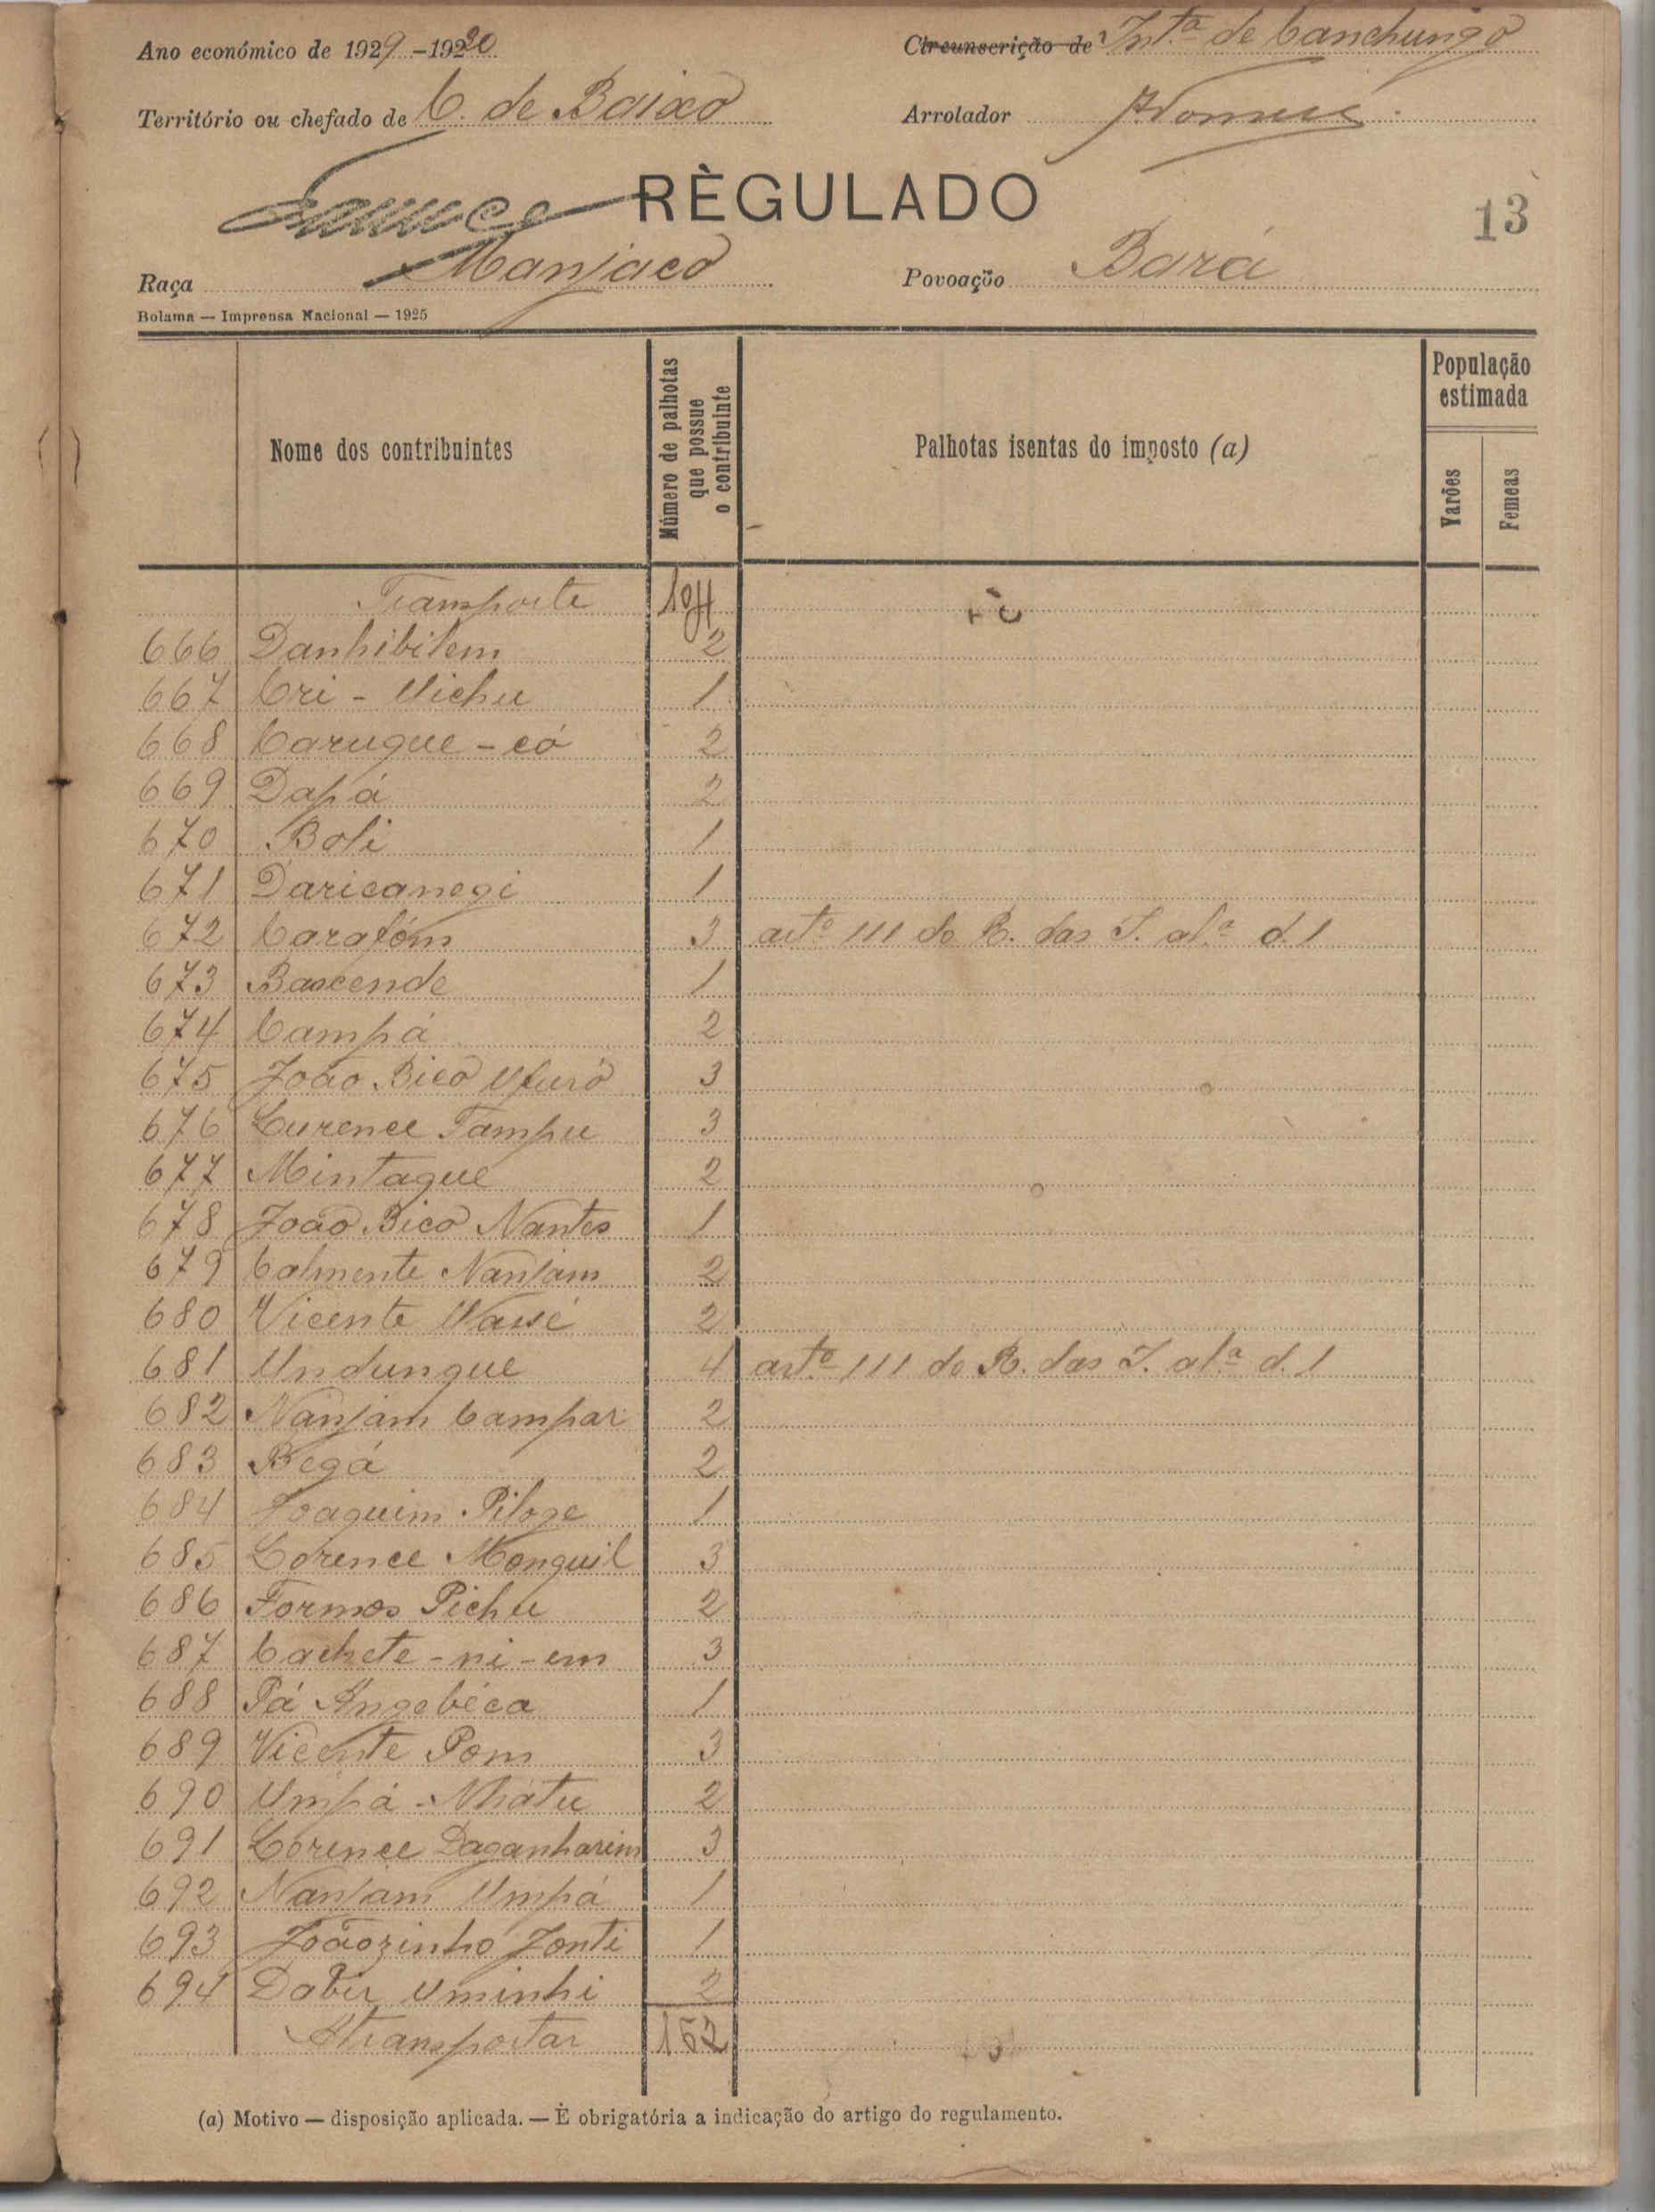 Ano económico de 1929-1930
Circunscrição de Int.ª de Canchungo
Território ou chefado de C. de Baixo
Arrolador
RÈGULADO
13
Raça Manjaco
Povoação Bará
Bolama — Imprensa Nacional — 1925
Nome dos contribuintes
Número de palhotas que possue o contribuinte
Palhotas isentas do imposto (a)
População estimada
Varões
Femeas
Transporte 104
666 Danhibilem 2
667 Cri - Uichu 1
668 Carugue - có 2
669 Dapá 2
670 Boli 1
671 Daricanegi 1
672 Carafóm 3 artº 111 do R. das I. alª d. 1
673 Bascende 1
674 Campá 2
675 João Bico Ufuró 3
676 Lurence Tampu 3
677 Mintague 2
678 João Bico Nantes 1
679 Calmente Nanjam 2
680 Vicente 2
681 Undungue 4 artº 111 do R. das I. alª d. 1
682 Nanjam Campar 2
683 Begá 2
684 Joaquim Piloge 1
685 Lorence Monguil 3
686 Formos Pichu 2
687 Cachete - ni - em 3
688 Pá Angebéca 1
689 Vicente Pom 3
690 Umpá - Nhatu 2
691 Lorence Daganharim 3
692 Nanjam Umpá 1
693 Joãozinho Jonti 1
694 Dabu Uminhi 2
A transportar 162
(a) Motivo — disposição aplicada. — È obrigatória a indicação do artigo do regulamento.